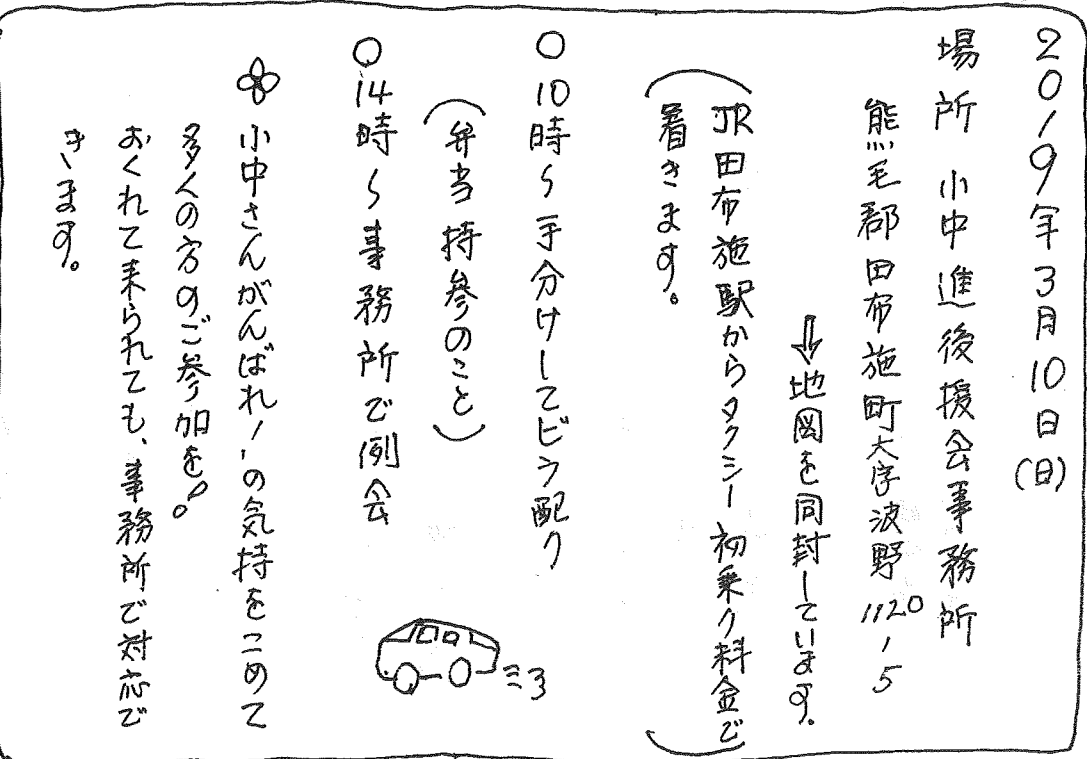 2019年3月10日(日)
場所 小中進後援会事務所
熊毛郡田布施町大字波野1120-5
⇩地図を同封しています。
(JR田布施駅からタクシー初乗り料金で
着きます。)
○10時~手分けしてビラ配り
(弁当持参のこと)
○14時~事務所で例会
小中さんがんばれ!の気持をこめて
多くの方のご参加を!
おくれて来られても、事務所で対応で
きます。